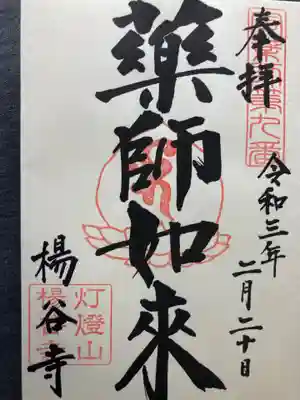 奉拝
令和三年
二月二十日
藥師如來
楊谷寺
灯燈山
楊谷寺